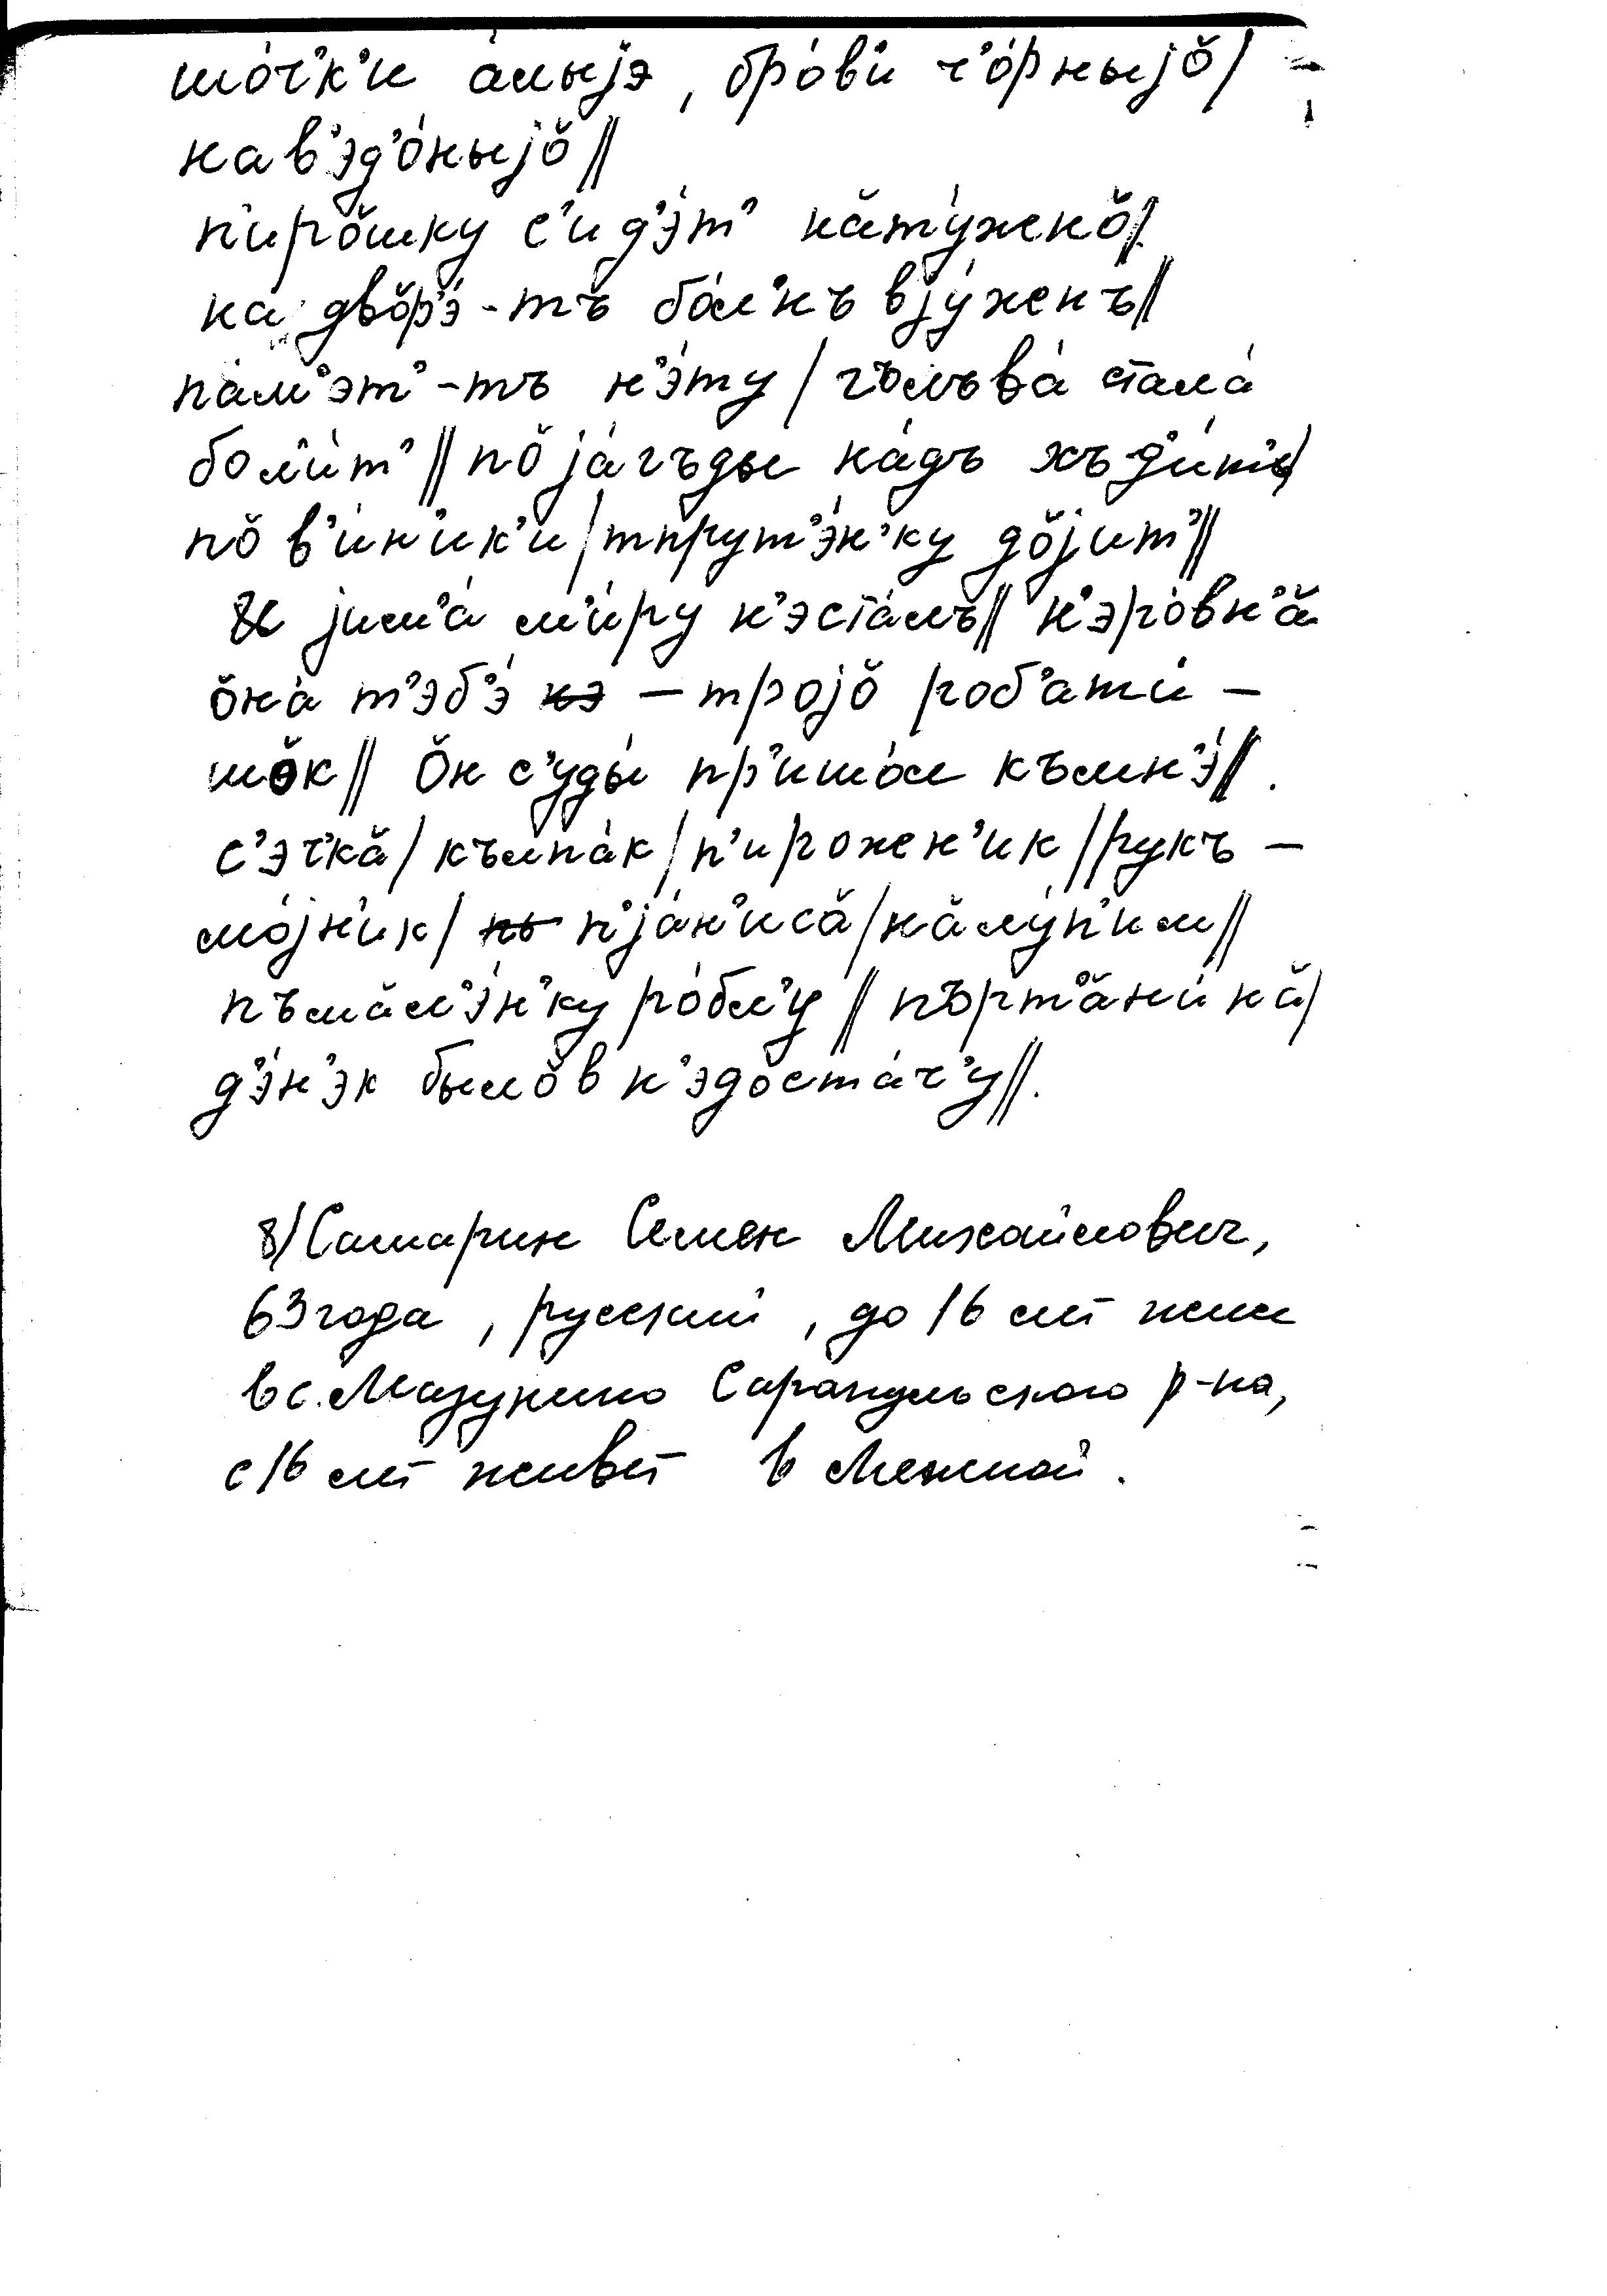 шо́ч'к'и а́лыjэ, бро́в'и ч'о́рныjŏ/
нав'эд'о́ныjŏ//
п'ирŏшку с'ид'э́т' нăту́женŏ//
на двŏр'э́-тъ бо́л'нъ вjу́женъ//
па́м'эт'-тъ н'э́ту/гълъва́ стала́
бол'и́т'//пŏ jа́гъды на́дъ хъд'и́т'/
пŏ в'и́н'ик'и/тпрут'э́н'ку дŏjит'//
И jим'а́ м'и́ру н'эста́лъ// н'эро́вн'ă
ŏна́ т'эб'э́ – троjŏ роб'ати́-
шŏк// Ŏн с'уды́ пр'ишо́л към н'э́//.
с'э́ч'кă/кълпа́к/п'ирожен'ик/рукъ-
мо́jн'ик/ п'jа́н'исă/нăлу́п'им//
пъмăл'э́н'ку ро́бл'у// пърт'ăни́нă/
д'э́н'эк былŏ в н'эдŏста́ч'у//.
8/Самарин Семен Михайлович,
63 года, русский, до 16 лет жил
в с. Мазунино Сарапульского р-на,
с 16 лет живет в Межной.